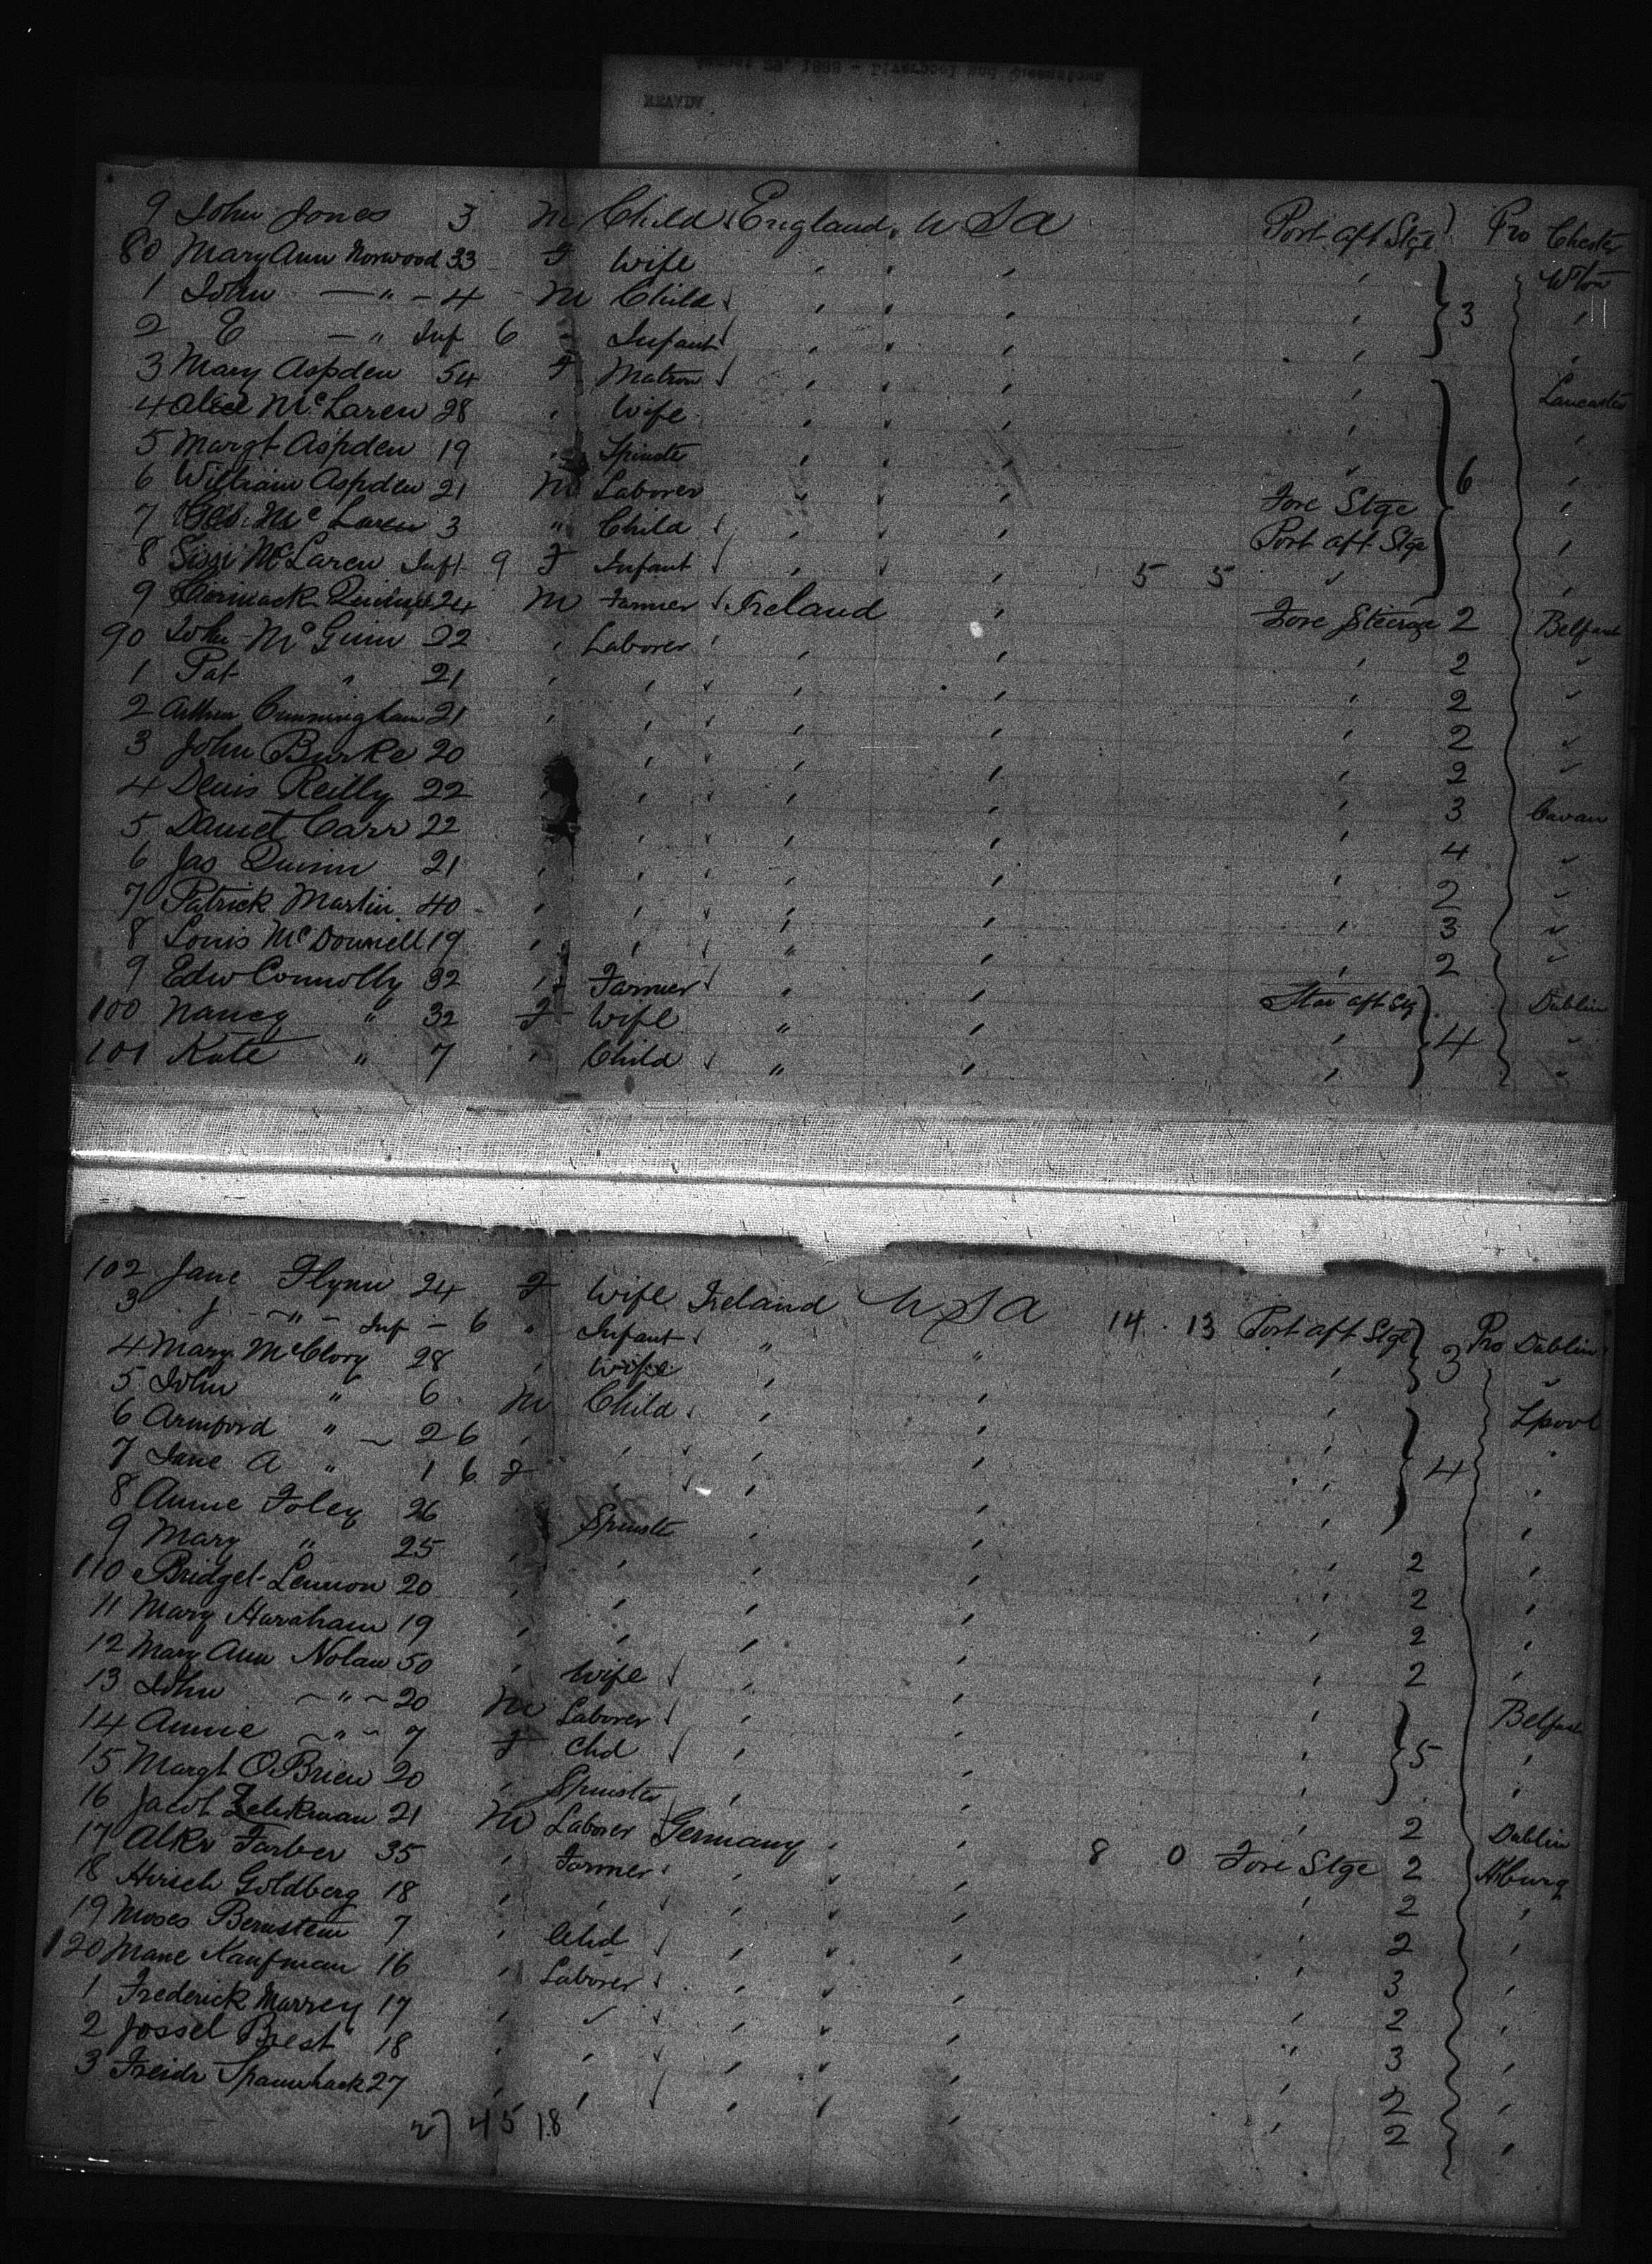 1889 - Liverpool and Queenstown
9 John Jones 3 M Child England U S A Port aft Stge Pro Chester
80 Mary Ann Norwood 33 F Wife " " " " W'ton
1 John — " — 4 M Child " " " " 3 "
2 E — " Inf 6 - Infant " " " " "
3 Mary Aspden 54 F Matron " " " " Lancaster
4 Alice McLaren 28 " Wife " " " " "
5 Margt Aspden 19 " Spinster " " " " "
6 William Aspden 21 M Laborer " " " Fore Stge 6 "
7 Geo. McLaren 3 " Child " " " Port aft Stge "
8 Sissi McLaren Inft 9 F Infant " " " 5 5 " "
9 24 M Farmer Ireland " Fore Steerage 2 Belfast
90 John McGinn 22 " Laborer " " " 2 "
1 Pat " 21 " " " " " 2 "
2 Arthur Cunningham 21 " " " " " 2 "
3 John Burke 20 " " " " " 2 "
4 Denis Reilly 22 " " " " " 3 Cavan
5 Daniel Carr 22 " " " " " 4 "
6 Jas Quinn 21 " " " " " 2 "
7 Patrick Martin 40 " " " " " 3 "
8 Louis McDonnell 19 " " " " " 2 "
9 Edw Connolly 32 " Farmer " " Star aft Stg Dublin
100 Nancy " 32 F Wife " " " 4 "
101 Kate " 7 " Child " " " "
102 Jane Flynn 24 F Wife Ireland U S A 14 . 13 Port aft Stge 3 Pro Dublin
3 J - " - Inf - 6 " Infant " " " "
4 Mary McClory 28 " Wife " " " Lpool
5 John " 6 M Child " " " "
6 " 2 6 " " " " " 4 "
7 Jane A " 1 6 F " " " "
8 Annie Foley 26 Spinster " " " 2 "
9 Mary " 25 " " " " " 2 "
110 Bridget Lennon 20 " " " " " 2 "
11 Mary Harahan 19 " " " " " 2 "
12 Mary Ann Nolan 50 " Wife " " " Belfast
13 John — " — 20 M Laborer " " " 5 "
14 Annie — " — 7 F Chd " " " "
15 Margt O'Brien 20 " Spinster " " " 2 Dublin
16 Jacob 21 M Laborer Germany " " 8 0 Fore Stge 2 Hburg
17 Farber 35 " Farmer " " " " 2 "
18 Hirsch Goldberg 18 " " " " " " 2 "
19 Moses Bernstein 7 " Chd " " " " 3 "
120 Kaufman 16 " Laborer " " " " 2 "
1 Frederick 17 " " " " " " 3 "
2 Jossel Brest 18 " " " " " " 2 "
3 27 " " " " " " 2 "
2) 45 18